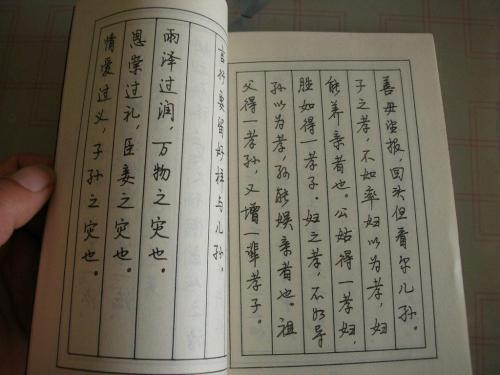 善毋望报，回头但看尔儿孙。
子之孝，不如率妇以为孝，妇
能养亲者也。公姑得一孝妇，
胜如得一孝子。妇之孝，不如导
孙以为孝，孙能娱亲者也。祖
父得一孝孙，又增一辈孝子。
言行要留好样与儿孙，
雨泽过润，万物之灾也。
恩崇过礼，臣妾之灾也。
情爱过义，子孙之灾也。